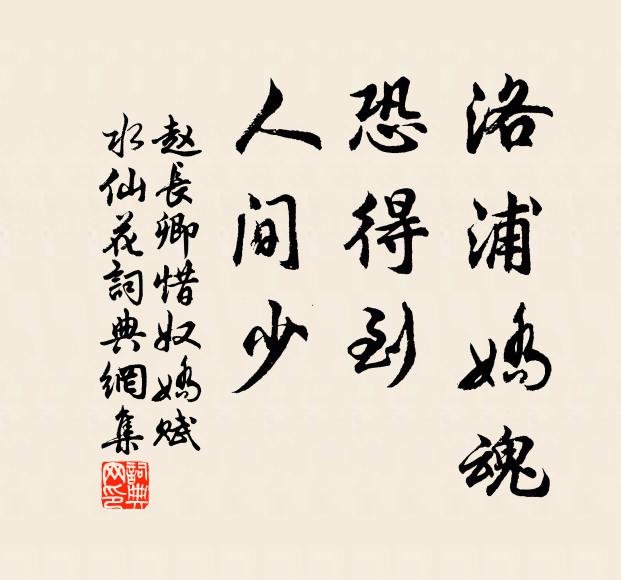 洛浦嬌魂
恐得到
人間少
赵長卿惜奴嬌賦
水仙花詞典網集
詞典网印